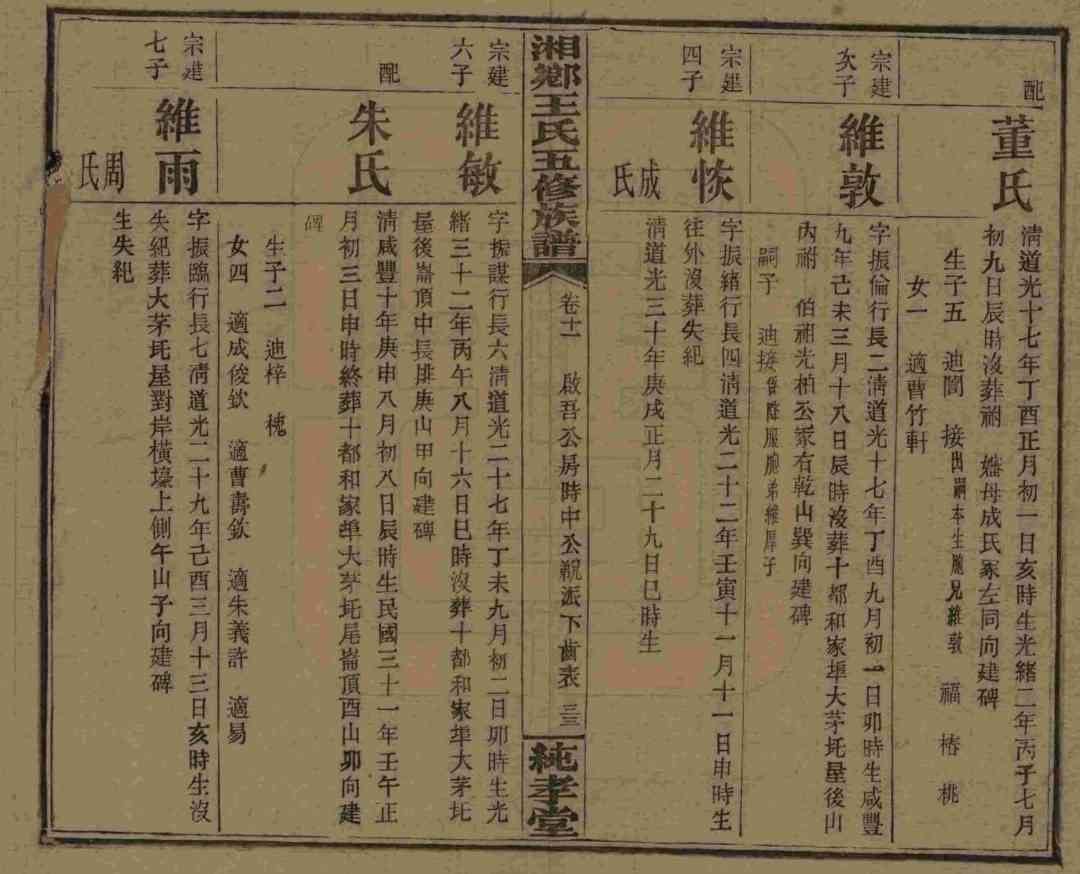 配
董氏
清道光十七年丁酉正月初一日亥時生光緒二年丙子七月
初九日辰時沒葬祔 嬸母成氏冢左同向建碑
生子五 迪閶 接出嗣本生胞兄維敦 福 椿 桃
女一 適曹竹軒
宗建
次子
維敦
字振倫行長二清道光十七年丁酉九月初一日卯時生咸豐
九年己未三月十八日辰時沒葬十都和家埠大茅坵屋後山
內祔 伯祖光柏公冢右乾山巽向建碑
嗣子 迪接胞弟維厚子
宗建
四子
維恢
字振緒行長四清道光二十二年壬寅十一月十一日申時生
往外沒葬失紀
成氏
清道光三十年庚戌正月二十九日巳時生
湘鄉王氏五修族譜
卷十一 啟吾公房時中公觀派下齒表 三三
純孝堂
宗建
六子
維敏
字振謀行長六清道光二十七年丁未九月初二日卯時生光
緒三十二年丙午八月十六日巳時沒葬十都和家埠大茅坵
屋後崙頂中長排庚山甲向建碑
配
朱氏
清咸豐十年庚申八月初八日辰時生民國三十一年壬午正
月初三日申時終葬十都和家埠大茅坵尾崙頂酉山卯向建
碑
生子二 迪梓 槐
女四 適成俊欽 適曹壽欽 適朱義許 適易
宗建
七子
維雨
字振臨行長七清道光二十九年己酉三月十三日亥時生沒
失紀葬大茅坵屋對岸橫壕上側午山子向建碑
周氏
生失紀